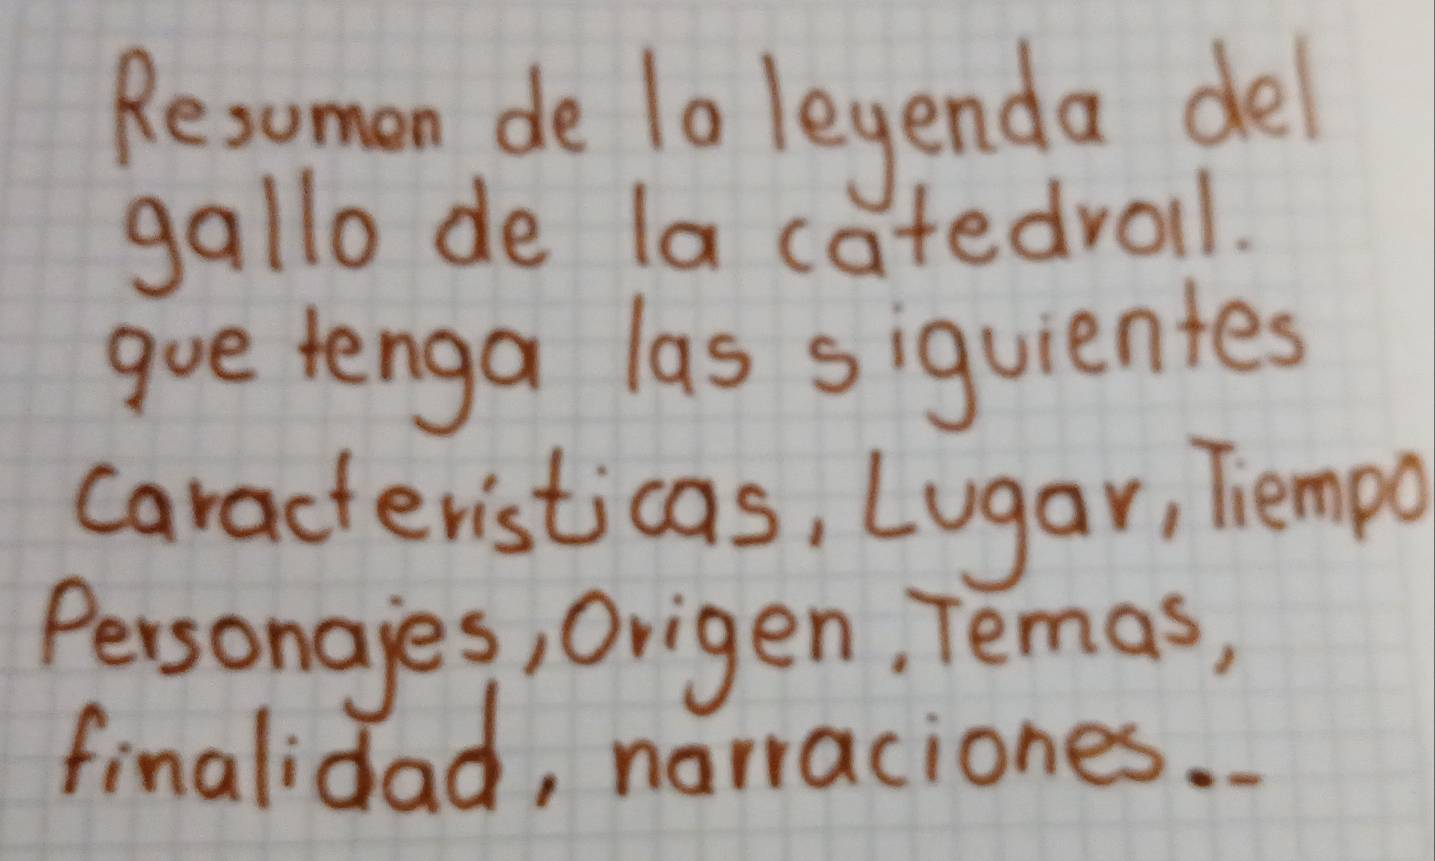 Resumen de la leyenda del
gallo de la catedral.
que tenga las siguientes
Características, Lugar, Tiempo
Personajes, Origen, Temas,
finalidad, narraciones...